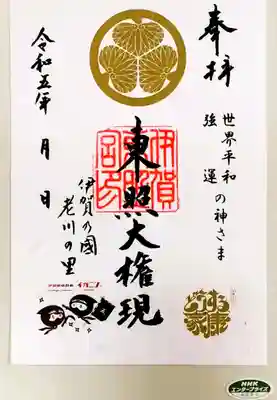 奉拝
世界平和
強運
の神さま
伊賀
東照
宮印
東照大権現
伊賀の國
老川の里
令和五年 月 日
NHK
エンタープライズ